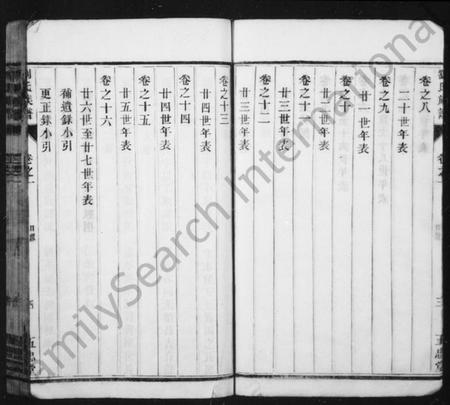 卷之八
二十世年表
卷之九
廿一世年表
卷之十
廿二世年表
卷之十一
廿三世年表
卷之十二
廿三世年表
卷之十三
廿四世年表
卷之十四
廿四世年表
卷之十五
廿五世年表
卷之十六
廿六世至廿七世年表
補遺錄小引
更正錄小引
卷之一
目錄
五忠堂
FamilySearch International